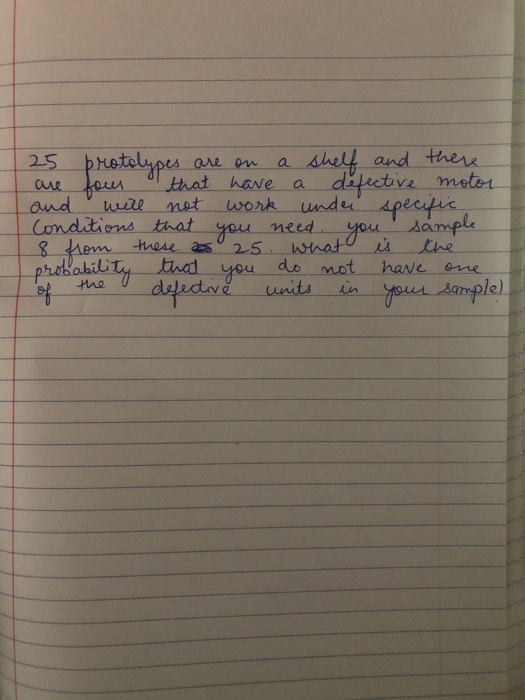 25 prototypes are on a shelf and there
are four that have a defective motor
and will not work under specific
Conditions that you need. you sample
8 from these 25. what is the
probability that you do not have one
of the defective units in your sample)